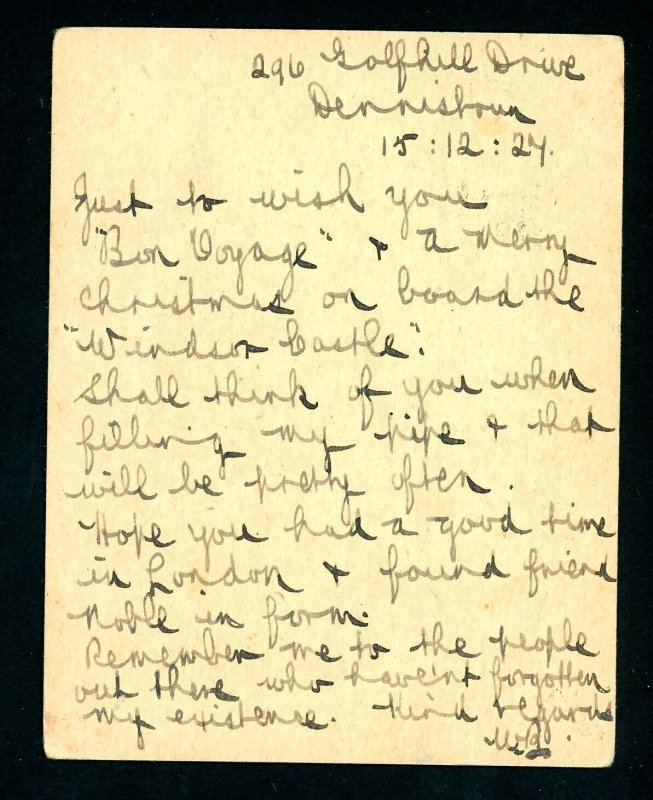 296 Golfhill Drive
Dennistoun
15:12:27.
Just to wish you
"Bon Voyage" & a merry
christmas on board the
"Windsor Castle".
Shall think of you when
filling my pipe & that
will be pretty often.
Hope you had a good time
in London & found friend
Noble in form.
Remember me to the people
out there who haven't forgotten
my existence. Kind regards